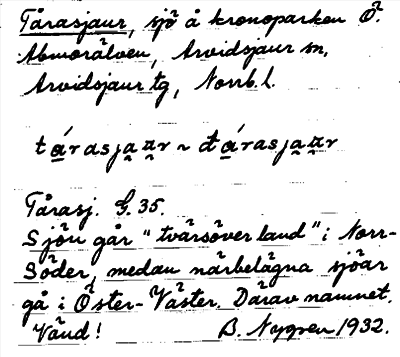 Tårasjaur, sjö å kronoparken Ö.
Abmorälven, Arvidsjaur sn,
Arvidsjaur tg, Norrb. l.
tá̱rasja̯a̯r ~ đá̱rasja̯a̯r
Tårasj. G. 35.
Sjön går "tvärsöver land" i Norr-
Söder, medan närbelägna sjöar
gå i Öster-Väster. Därav namnet.
Vänd! B. Nygren 1932.